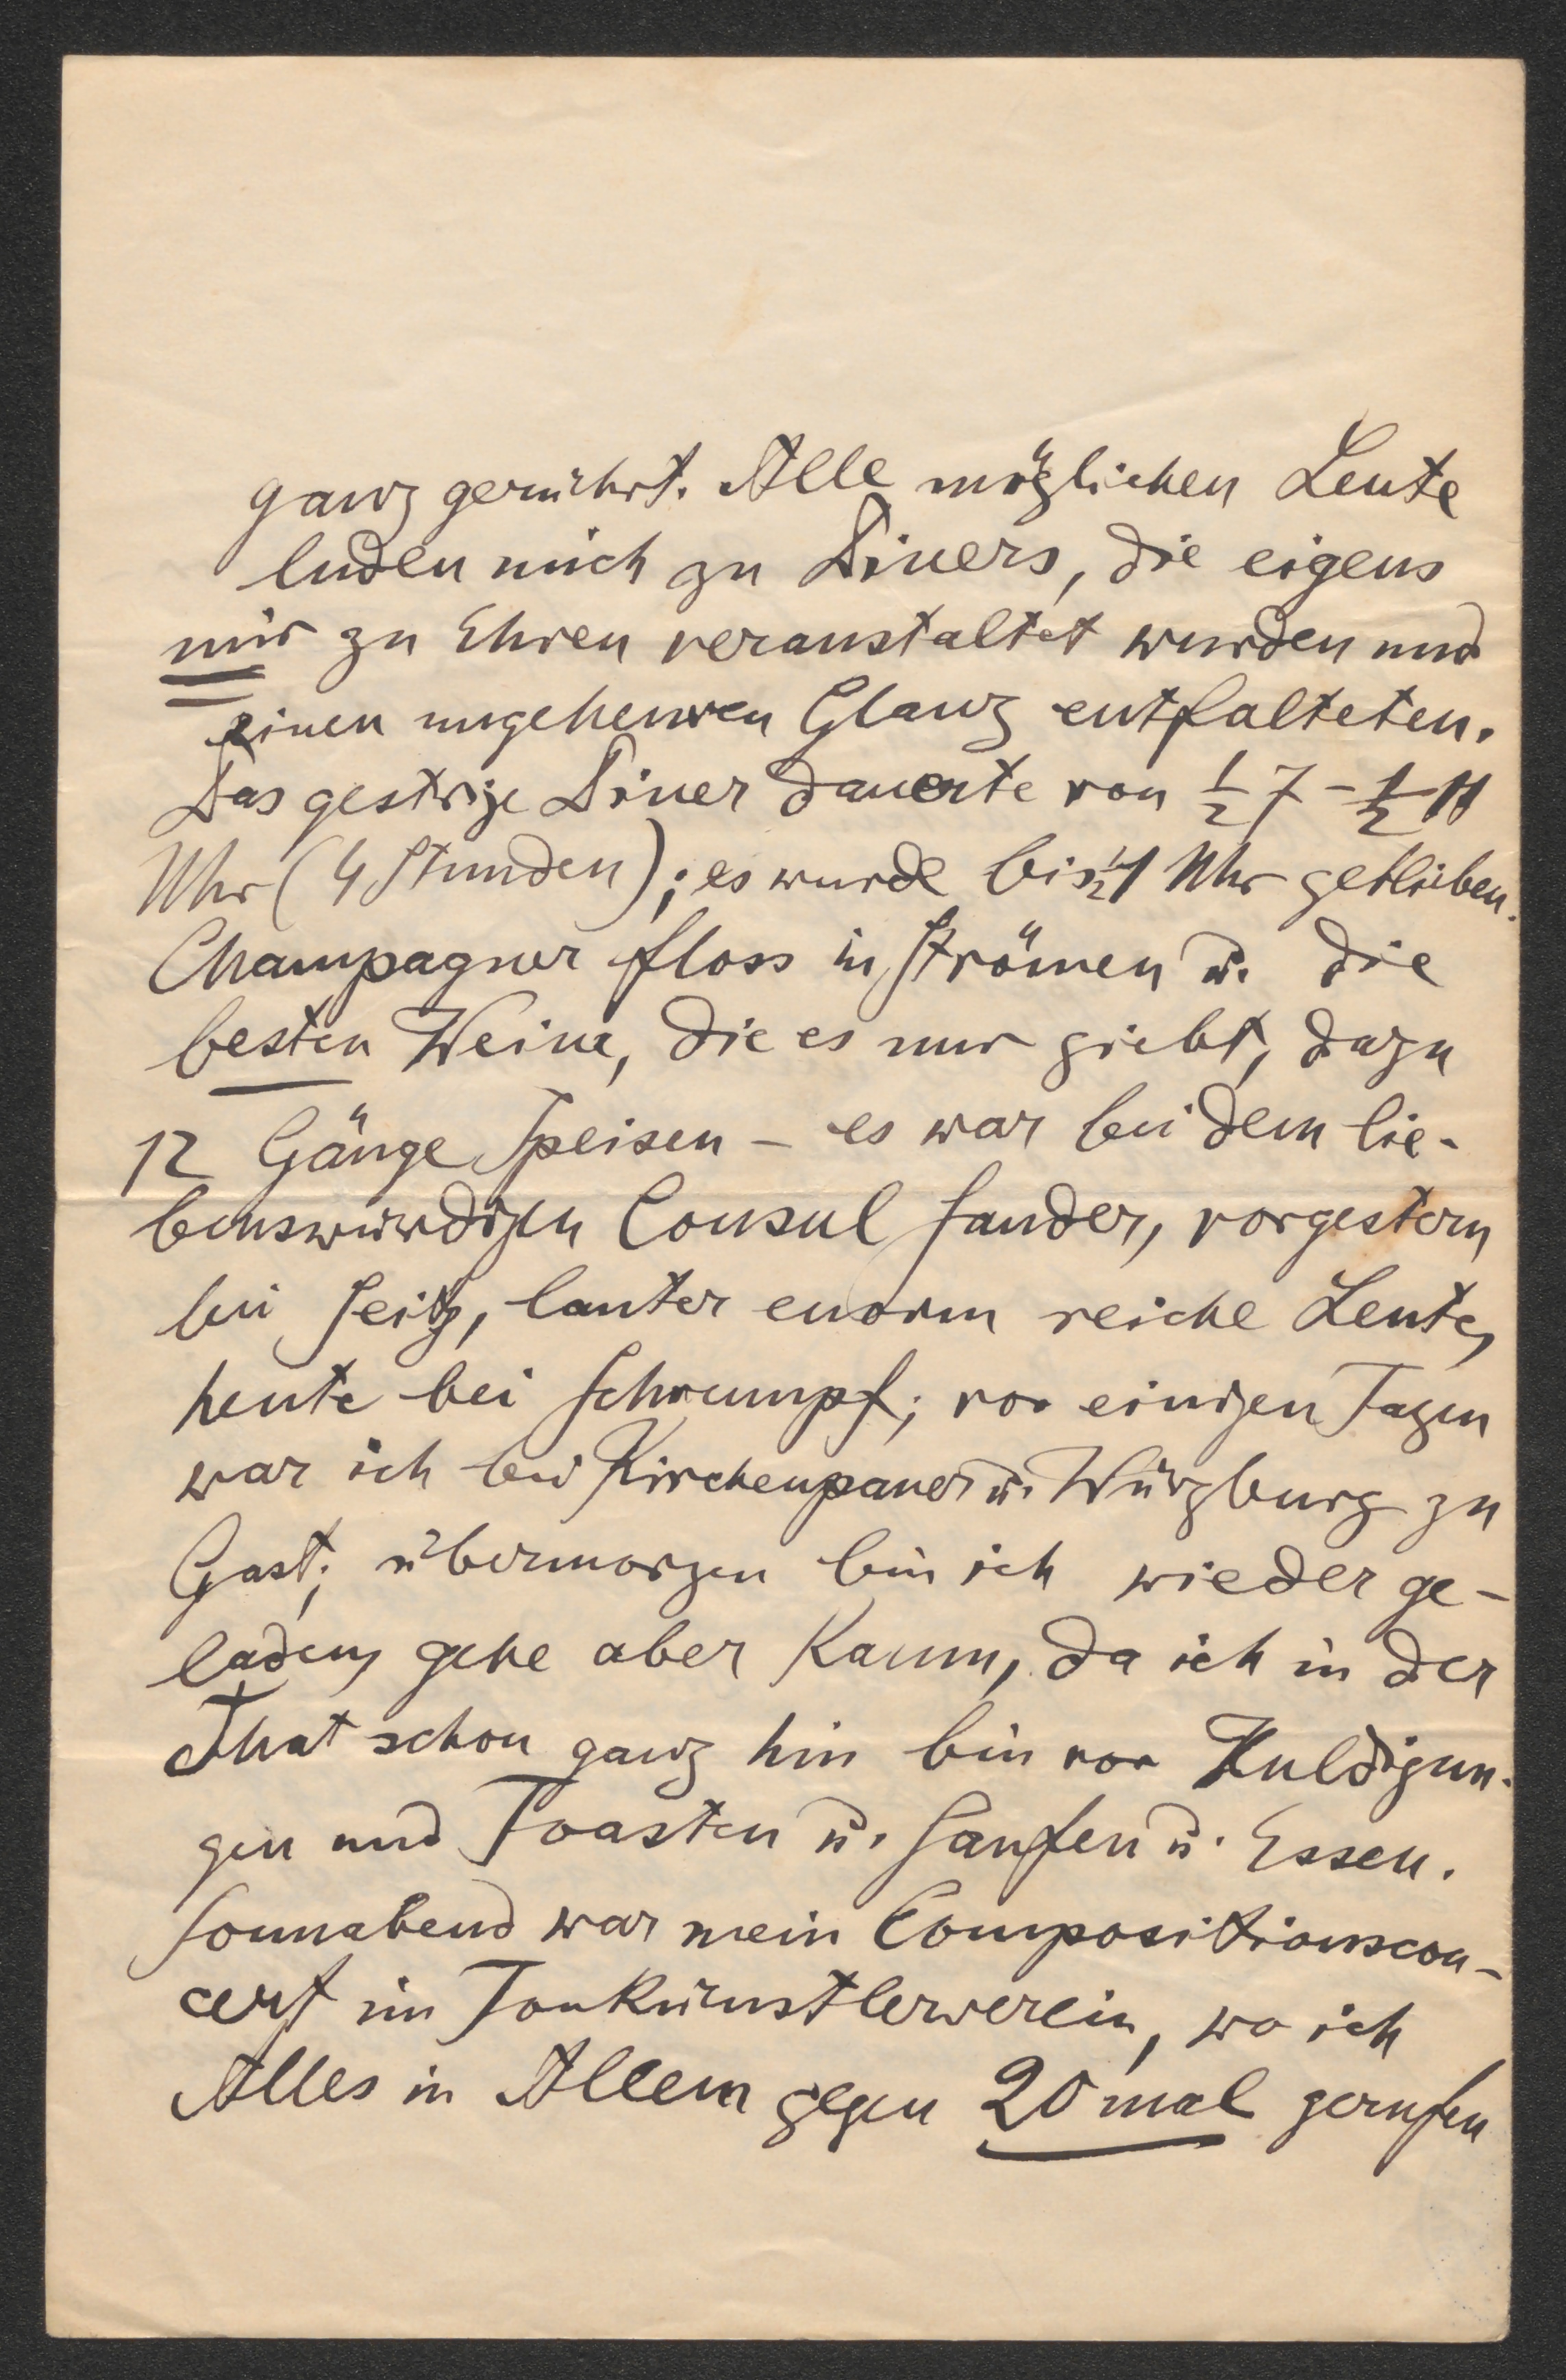 ganz gerührt. Alle möglichen Leute
luden mich zu Diners, die eigens
mir zu Ehren veranstaltet wurden und
einen ungeheuren Glanz entfalteten.
Das gestrige Diner dauerte von ½ 7 - ½ 11
Uhr (4 Stunden); es wurde bis ½ 1 Uhr geblieben.
Champagner floss in Strömen u. die
besten Weine, die es nur giebt, dazu
12 Gänge Speisen - es war bei dem lie-
benswürdigen Consul Sander, vorgestern
bei Seitz, lauter enorm reiche Leute,
heute bei Schrumpf; vor einigen Tagen
war ich bei Kirchenpauer u. Würzburg zu
Gast; übermorgen bin ich wieder ge-
laden, gehe aber kaum, da ich in der
That schon ganz hin bin vor Huldigun-
gen und Toasten u. Saufen u. Essen.
Sonnabend war mein Compositionscon-
cert im Tonkünstlerverein, wo ich
Alles in Allem gegen 20 mal gerufen